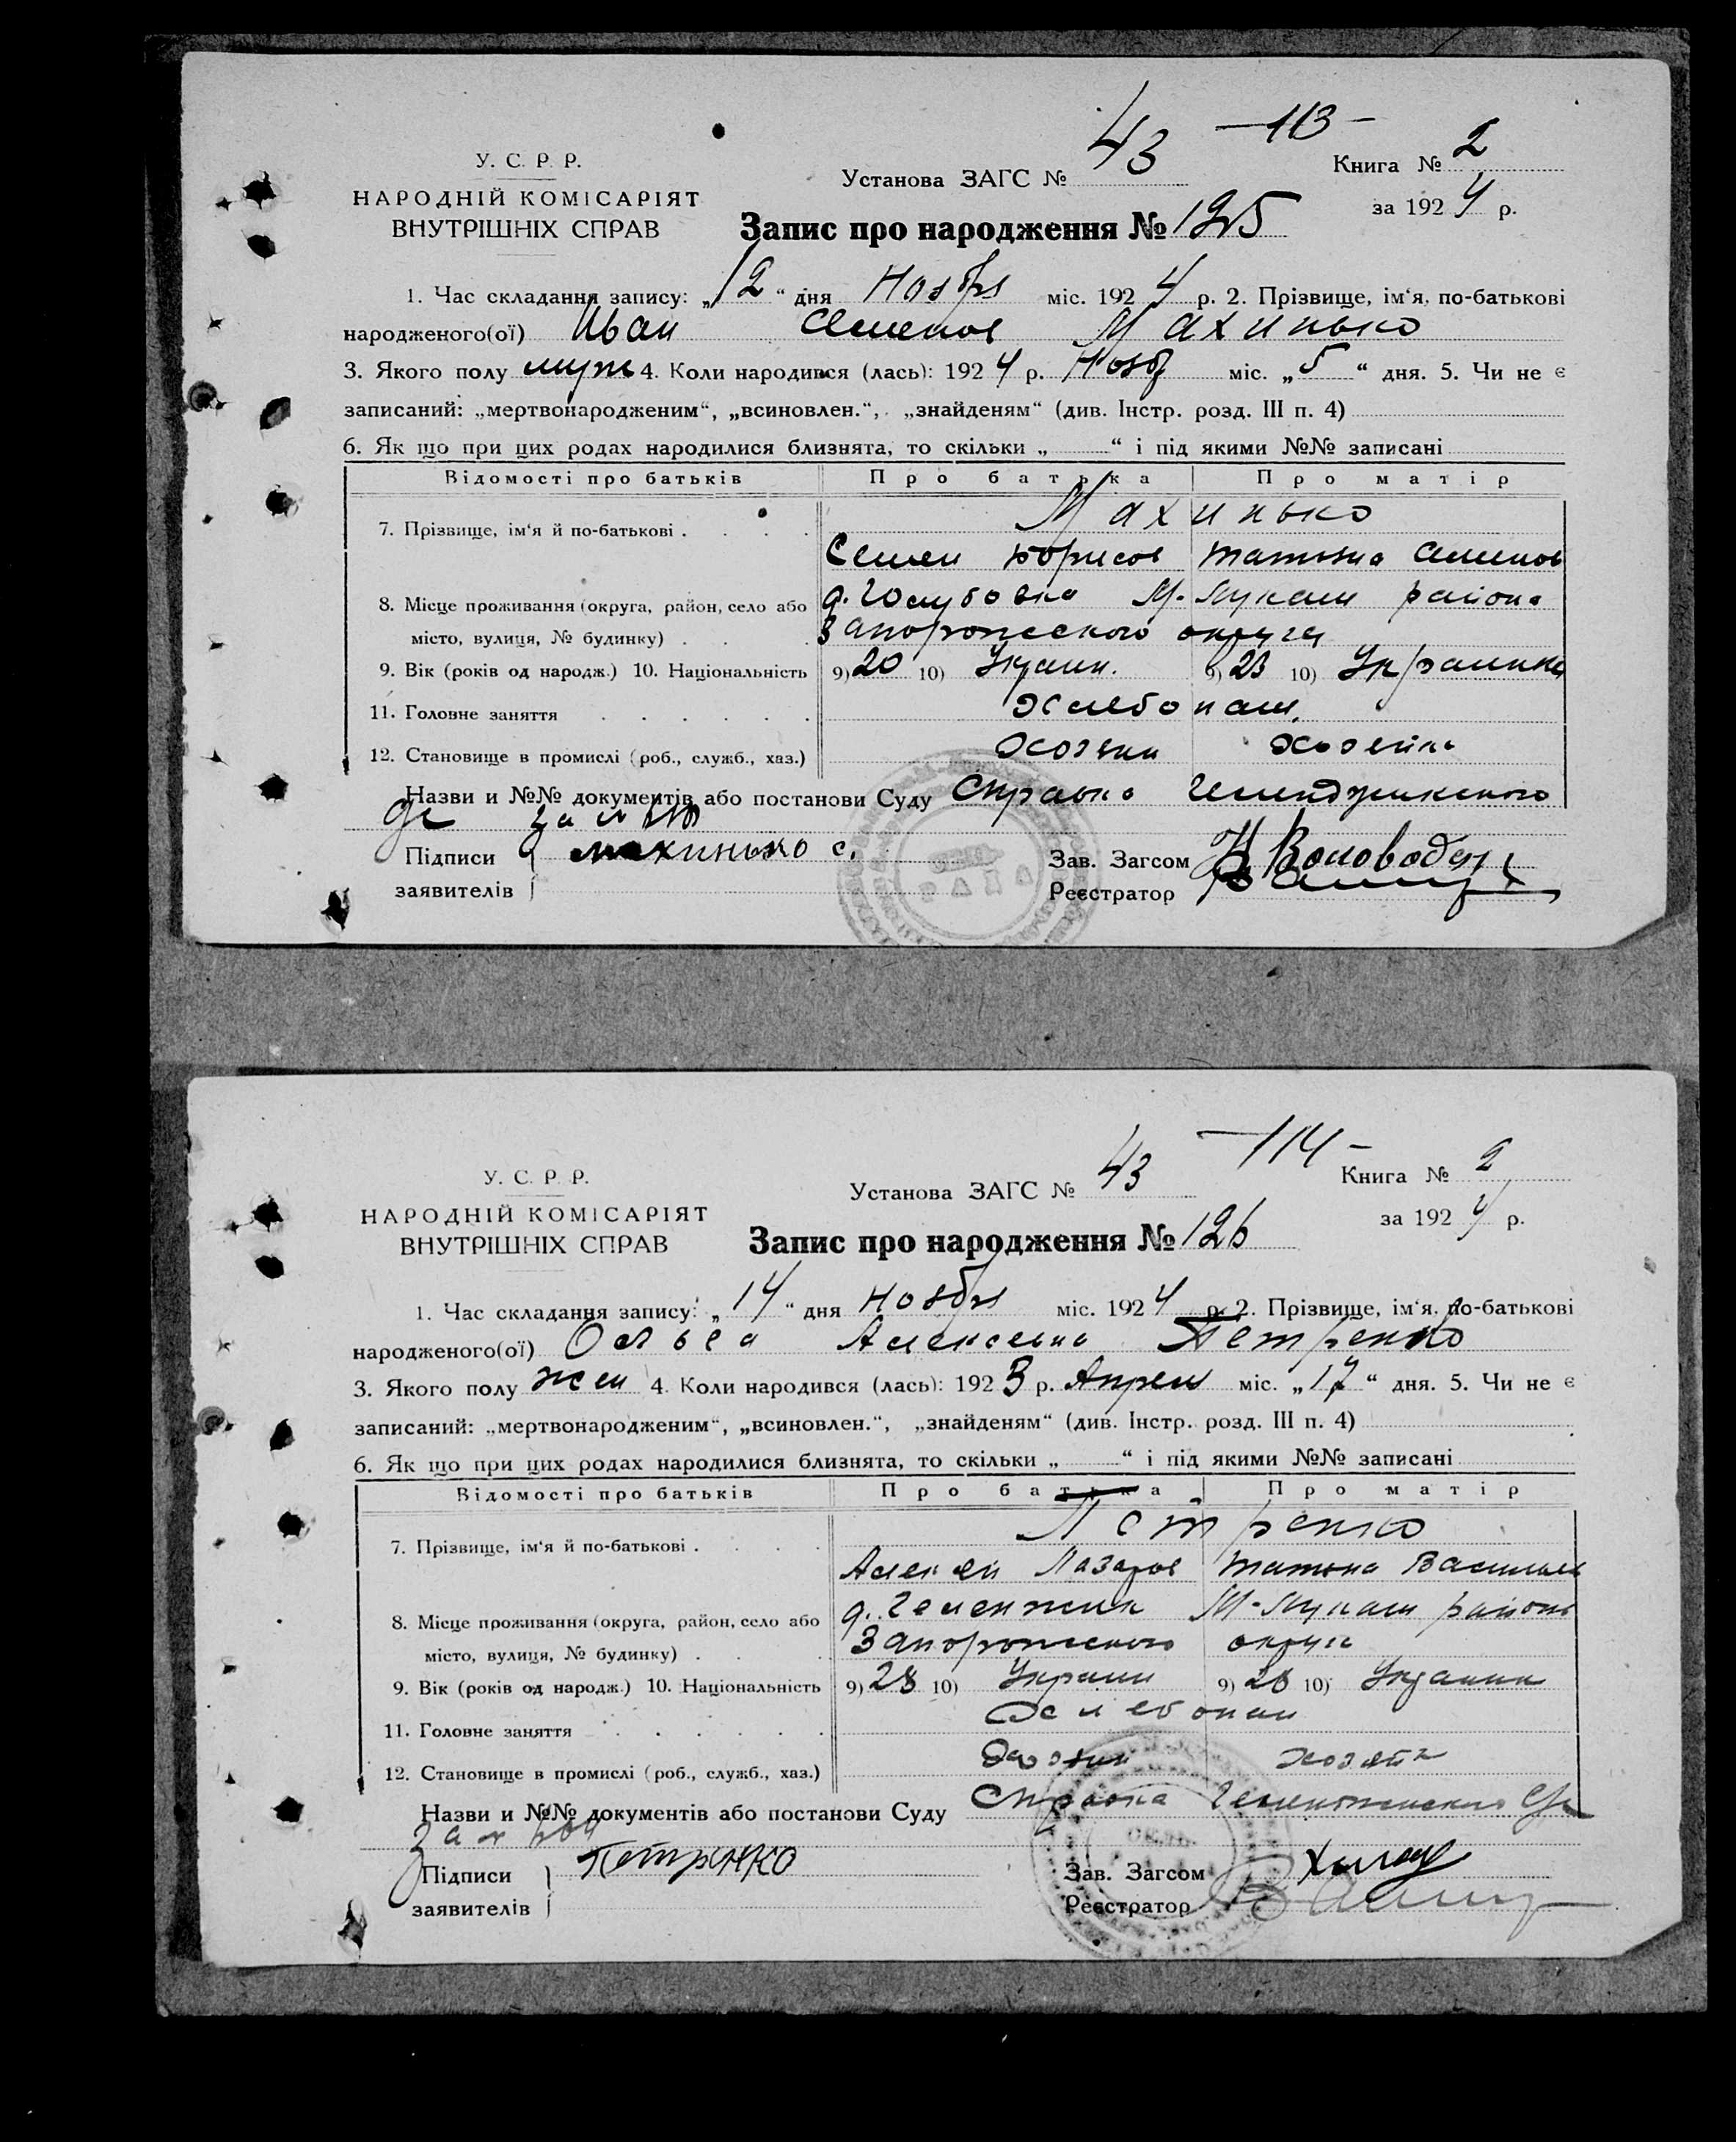 43 —113—
У. С. Р. Р. Установа ЗАГС № Книга № 2
НАРОДНІЙ КОМІСАРІЯТ за 1924 р.
ВНУТРІШНІХ СПРАВ Запис про народження № 125
1. Час складання запису: „12“ дня Ноября міс. 1924 р. 2. Прізвище, ім‘я, по-батькові
народженого(ої) Иван Семенов Махинько
3. Якого полу муж 4. Коли народився (лась): 1924 р. Нояб міс. „5“ дня. 5. Чи не є
записаний: „мертвонародженим“, „всиновлен.“, „знайденям“ (див. Інстр. розд. III п. 4)
6. Як що при цих родах народилися близнята, то скільки „ “ і під якими №№ записані
Відомості про батьків Про батька Про матір
7. Прізвище, ім‘я й по-батькові . . . . Махинько
Семен Борисов Татьяна Семенов
8. Місце проживання (округа, район, село або д. Голубовка М-Лукаш района
місто, вулиця, № будинку) . . . Запорожского округа
9. Вік (років од народж.) 10. Національність 9) 20 10) Украин. 9) 23 10) Украинка
11. Головне заняття . . . . . . Хлебопаш.
12. Становище в промислі (роб., служб., хаз.) Хозяин Хозяйка
Назви и №№ документів або постанови Суду Справка Геленджикского
за №
Підписи Махинько С. Зав. Загсом
заявителів Реєстратор
43 —114—
У. С. Р. Р. Установа ЗАГС № Книга № 2
НАРОДНІЙ КОМІСАРІЯТ за 1924 р.
ВНУТРІШНІХ СПРАВ Запис про народження № 126
1. Час складання запису: „14“ дня Ноября міс. 1924 р. 2. Прізвище, ім‘я, по-батькові
народженого(ої) Ольга Алексевна Петренко
3. Якого полу жен 4. Коли народився (лась): 1923 р. Апрел міс. „17“ дня. 5. Чи не є
записаний: „мертвонародженим“, „всиновлен.“, „знайденям“ (див. Інстр. розд. III п. 4)
6. Як що при цих родах народилися близнята, то скільки „ “ і під якими №№ записані
Відомості про батьків Про батька Про матір
7. Прізвище, ім‘я й по-батькові . . . . Петренко
Алексей Лазаров Татьяна Васильев
8. Місце проживання (округа, район, село або д. Геленжик М-Лукаш района
місто, вулиця, № будинку) . . . Запорожского округа
9. Вік (років од народж.) 10. Національність 9) 28 10) Украин 9) 28 10) Украинк
11. Головне заняття . . . . . . Хлебопаш
12. Становище в промислі (роб., служб., хаз.) Хозяин хозяйк
Назви и №№ документів або постанови Суду Справка Геленжикского
за №
Підписи Петренко Зав. Загсом
заявителів Реєстратор